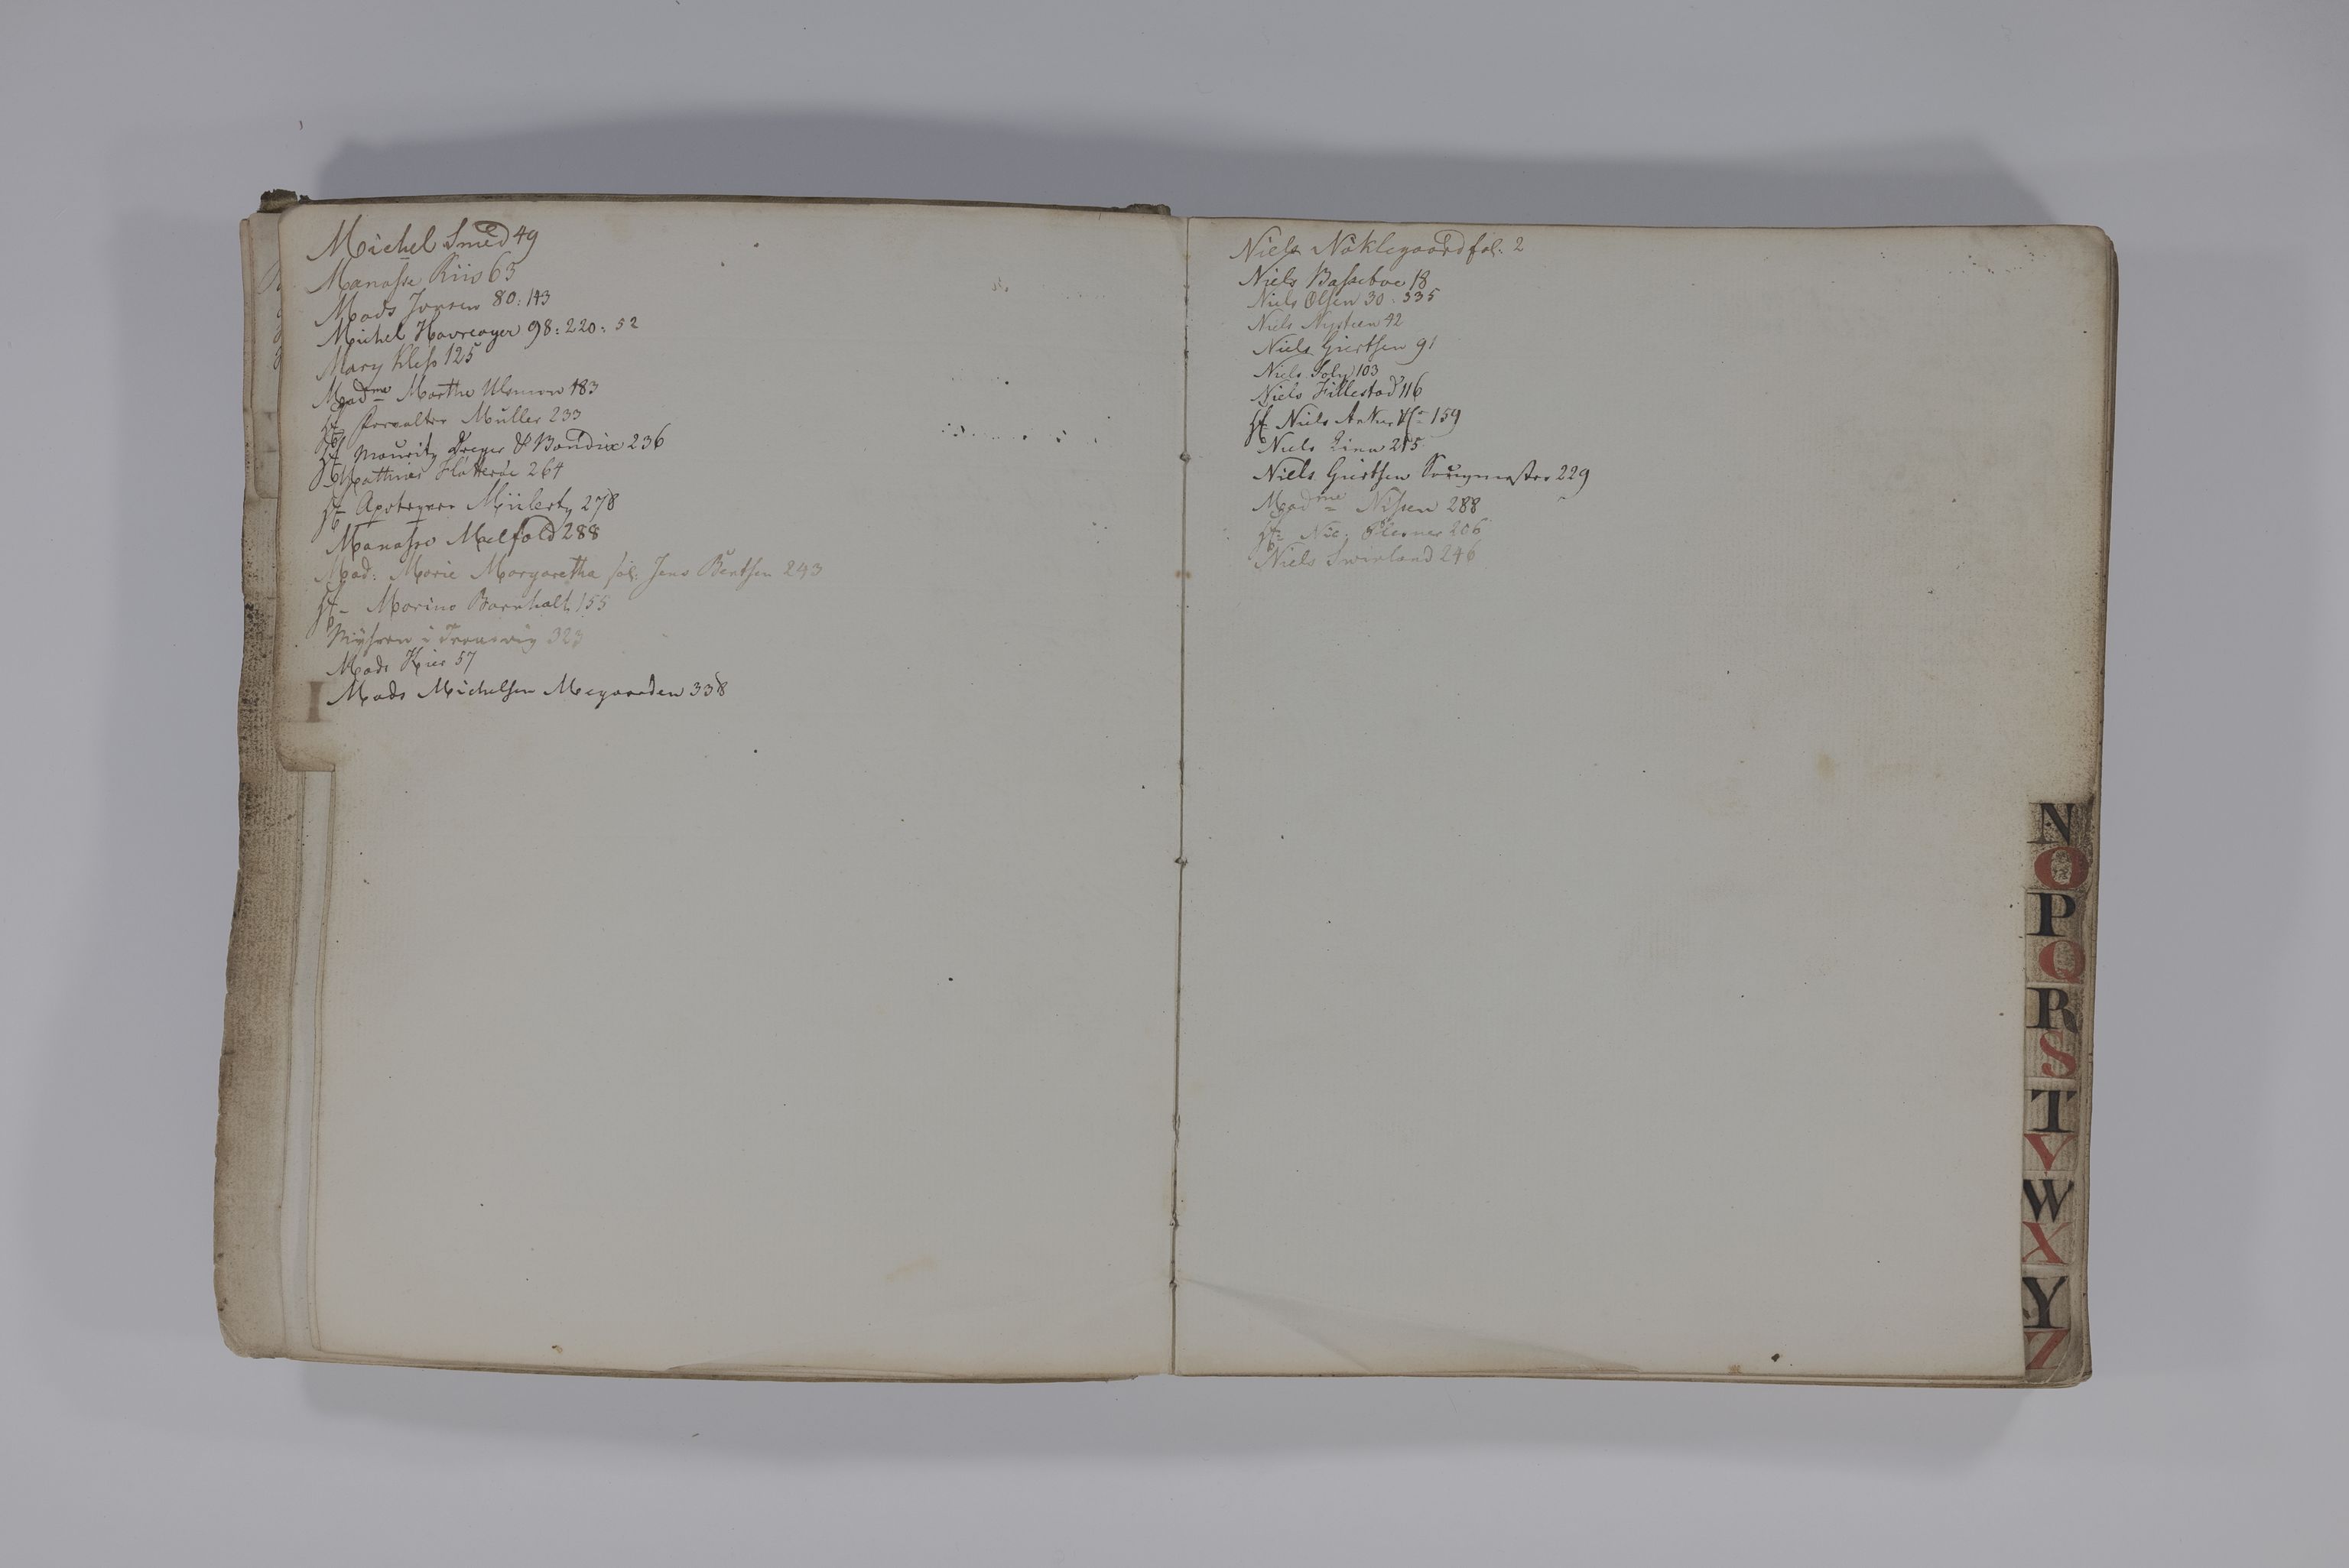 Michel Smed 49
Manasse Riis 63
Mads Jonsen 80: 143
Michel Havreager 98: 220: 52
Mary Kless 125
Mad^me Marthe Ulsman 183
Hr Forvalter Müller 233
Hr Mouritz Dreyer & Bendix 236
Mathias Flatteröe 264
Hr Apoteqver Mülertz 278
Manasse Maelfold 288
Mad: Marie Margaretha sal: Jens Bentsen 243
Hr Marino Barnholt 155
323
Mads Kier 57
Mads Michelsen Megaarden 338
I
Niels Nöklegaard fol: 2
Niels Basseboe 18
Niels Olsen 30: 335
Niels Nysteen 42
Niels Giertsen 91
Niels Soly 103
Niels Fillestad 116
Hr Niels Anker 159
Niels Lina 215
Niels Giertsen Saugmester 229
Mad^me Nissen 288
Hr Nic: Plesner 206
Niels Swinland 246
N
O
P
Q
R
S
T
V
W
X
Y
Z